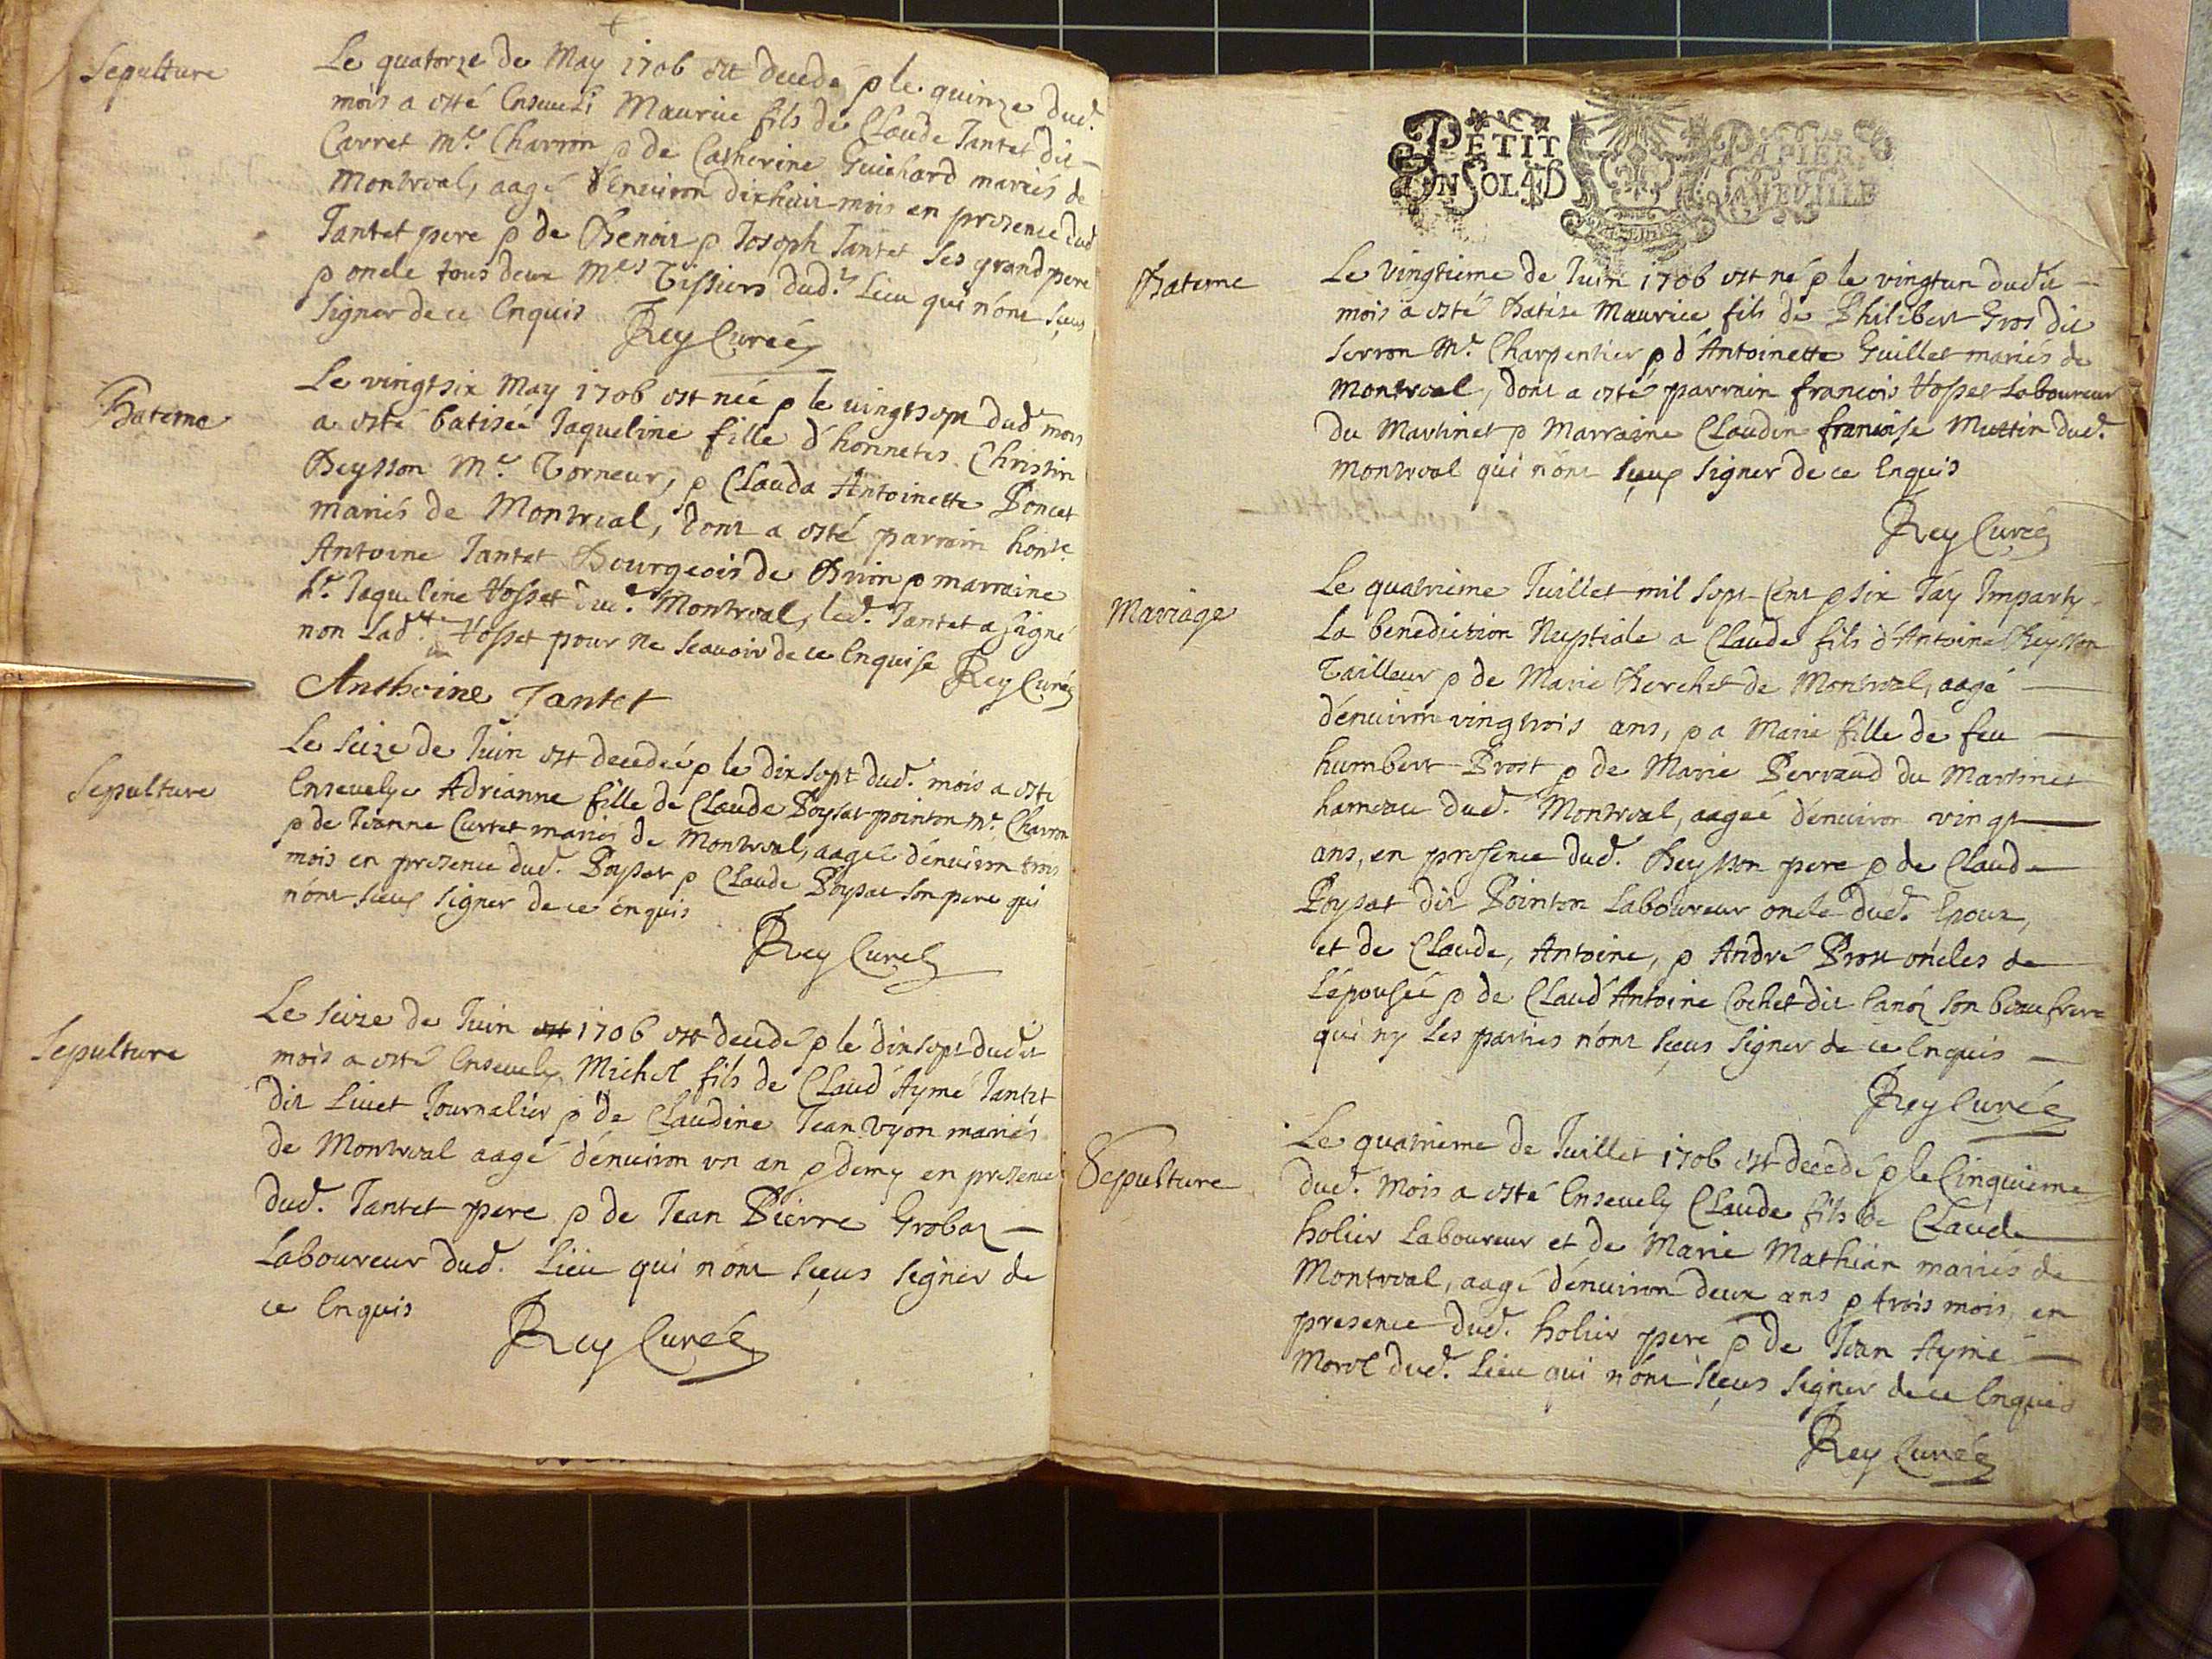 Sepulture
Le quatorze de May 1706 est decedé & le quinze dud.
mois a esté Enseveli Maurice fils de Claude Tantet dit
Carret Mre Charron & de Catherine Guichard mariés de
Montreal, aagé d'Environ dixhuit mois en presence dud
Tantet pere & de Benoit & Joseph Tantet ses grand pere
& oncle tous deux Mes Tissiers dud. Lieu qui n'ont sçeus
signer de ce Enquis Rey Curé
Bateme
Le vingtsix May 1706 est née & le vingtsept dud mois
a esté batiseé Jaqueline fille d'honnetes Christin
Beysson Mre Torneur, & Clauda Antoinette Poncet
mariés de Montreal, dont a esté parrain honte
Antoine Tantet Bourgeois de Brion & marraine
he Jaqueline Vosset dud. Montreal, led. Tantet a signé
non Ladte Vosset pour ne scavoir de ce Enquise Rey Curé
Anthoine Tantet
Sepulture
Le seize de Juin est decedeé & le dix sept dud. mois a esté
Ensevelye Adrianne fille de Claude Poysat pointon Mre Charron
& de Jeanne Curtet mariés de Montreal, aageé d'environ trois
mois en presence dud. Poysat & Claude Poysat son pere qui
n'ont sceus signer de ce enquis
Rey Curé
Sepulture
Le seize de Juin est 1706 est decedé & le dixsept dudit
mois a esté Ensevely Michel fils de Claud' Aymé Tantet
dit Livet Journalier & de Claudine Jean Vyon mariés
de Montreal aagé d'environ un an & demy en presence
dud. Tantet pere & de Jean Pierre Grobaz
Laboureur dud. Lieu qui n'ont sçeus signer de
ce Enquis
Rey Curé
PETIT PAPIER
UN SOL 4 D LA FEUILLE
Bateme
Le Vingtieme de Juin 1706 est né & le vingtun dudit
mois a esté Batise Maurice fils de Philibert Gros dit
serron Mre Charpentier & d'Antoinette Guillet mariés de
Montreal, dont a esté parrain francois Vosset Laboureur
du Martinet & Marraine Claudin francoise Mettin dud.
Montreal qui n'ont sçeus signer de ce Enquis
Rey Curé
Mariage
Le quatrieme Juillet mil sept Cent & six J'ay Imparty
La benediction Nuptiale a Claude fils d'Antoine Beysson
Tailleur & de Marie Berchet de Montreal, aagé
d'environ vingtrois ans, & a Marie fille de feu
humbert Prost & de Marie Perraud du Martinet
hameau dud. Montreal, aageé d'environ vingt
ans, en presence dud. Beysson pere & de Claude
Poysat dit Pointon Laboureur oncle dud. Epoux,
et de Claude, Antoine, & André Prost oncles de
L'epouseé & de Claud' Antoine Cochet dit Canoz son beaufrere
qui ny Les parties n'ont sçeus signer de ce Enquis
Rey Curé
Sepulture
Le quatrieme de Juillet 1706 est decedé & le Cinquieme
dud. mois a esté Ensevely Claude fils de Claude
holier Laboureur et de Marie Mathian mariés de
Montreal, aagé d'environ deux ans & trois mois, en
presence dud. holier pere & de Jean Aymé
Morel dud. Lieu qui n'ont sçeus signer de ce Enquis
Rey Curé